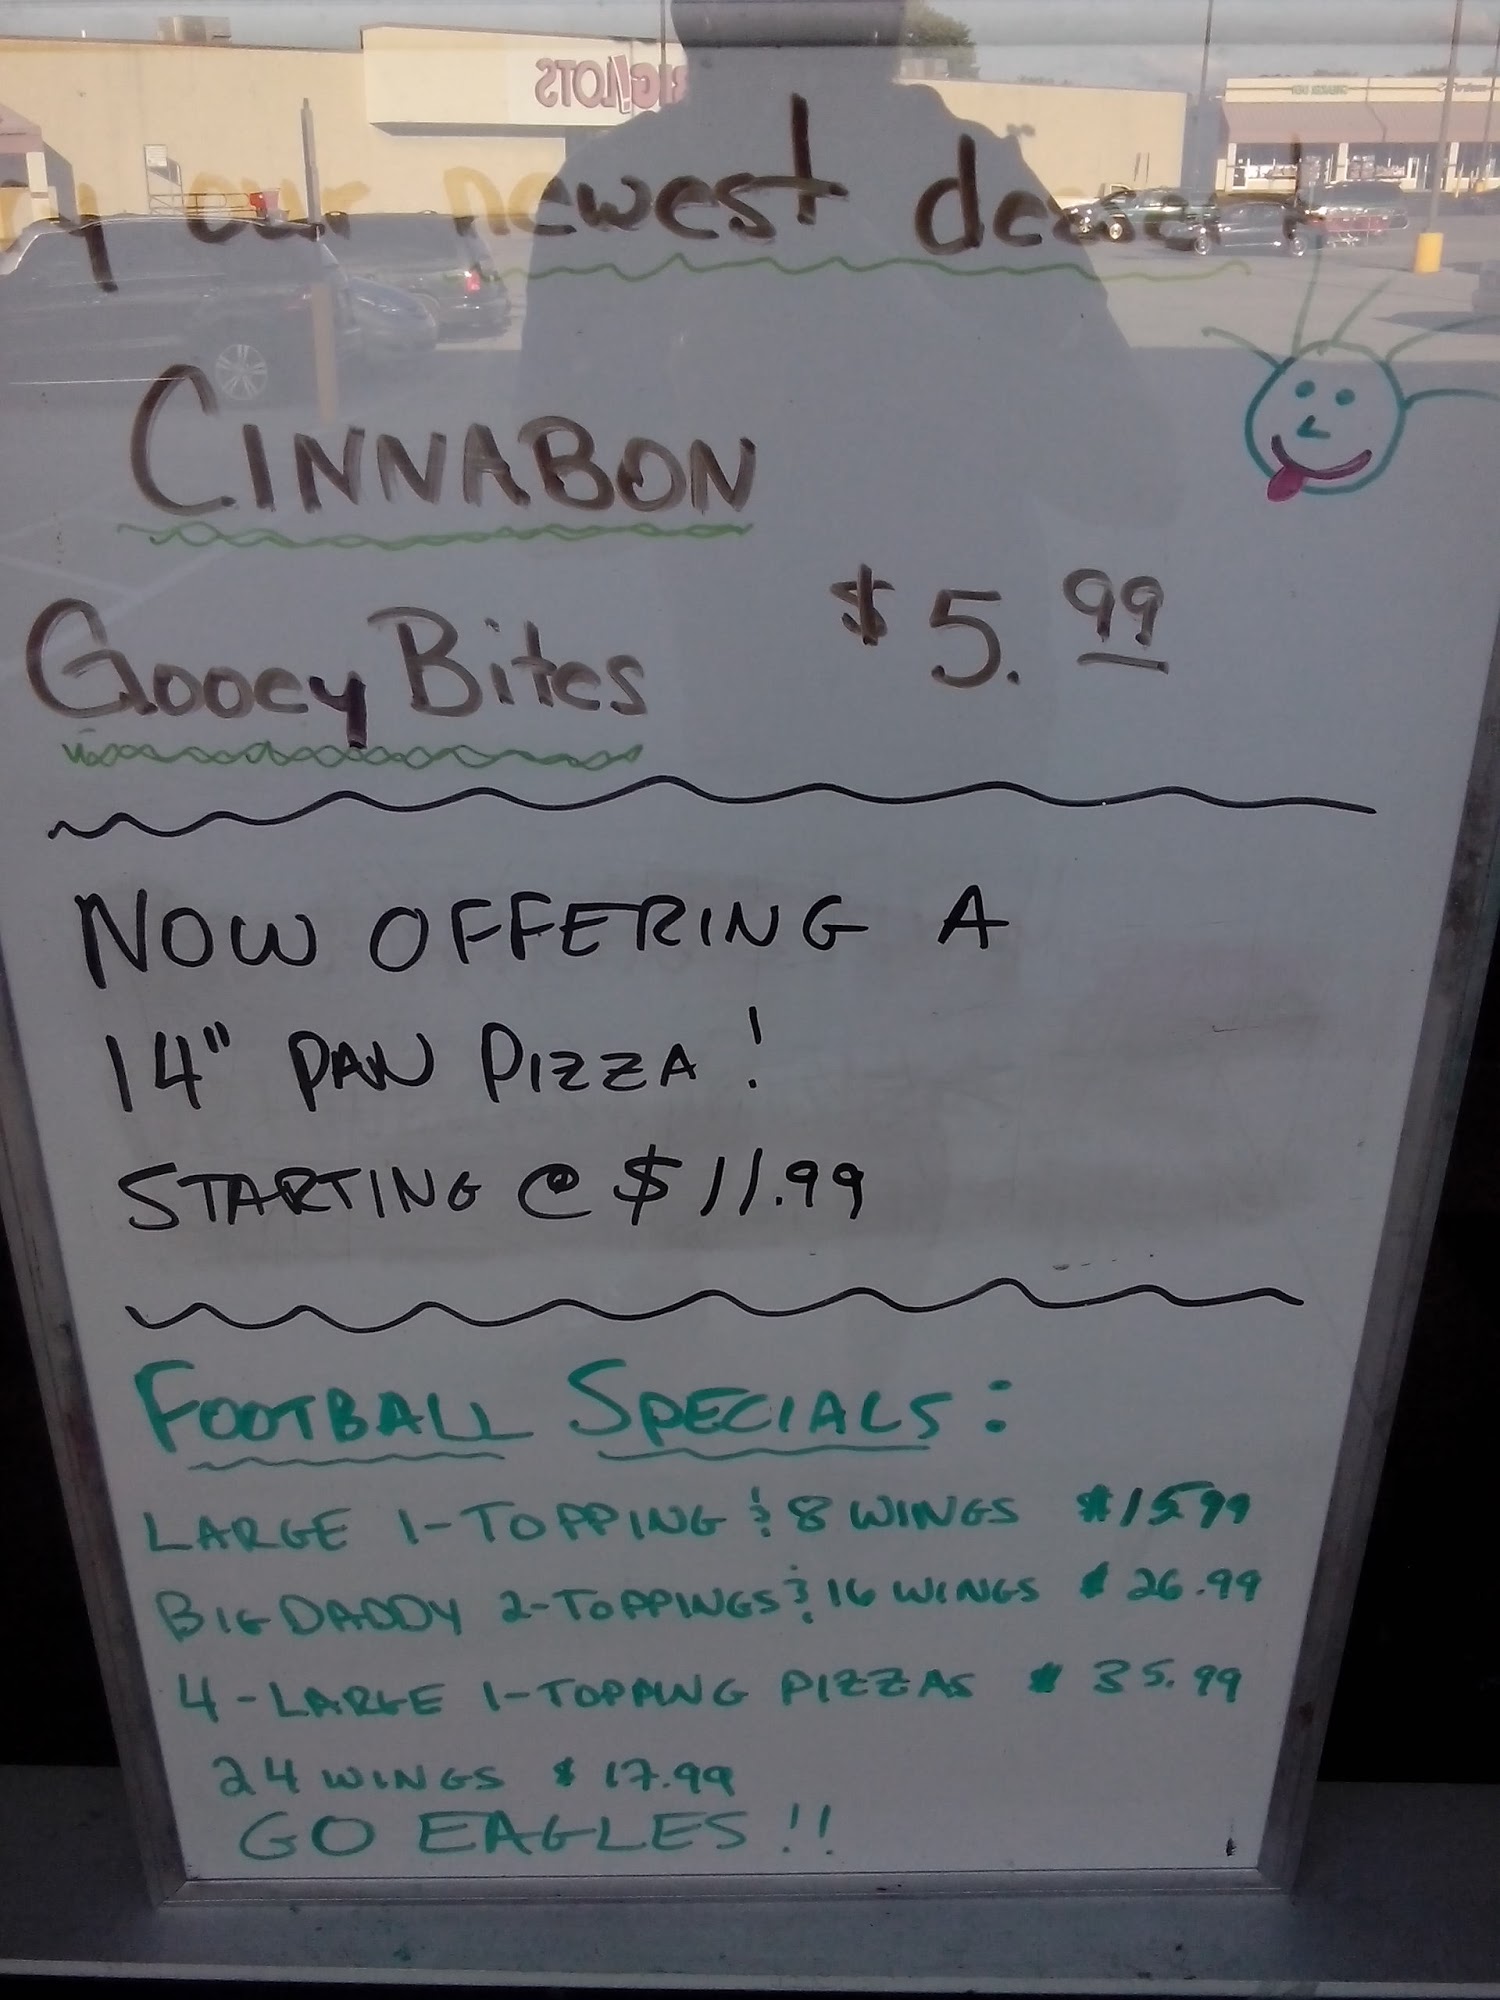 BIG LOTS
our newest dessert
CINNABON
Gooey Bites $5.99
NOW OFFERING A
14" PAN PIZZA!
STARTING @ $11.99
FOOTBALL SPECIALS:
LARGE 1-TOPPING & 8 WINGS $15.99
BIG DADDY 2-TOPPINGS & 16 WINGS $26.99
4-LARGE 1-TOPPING PIZZAS $35.99
24 WINGS $17.99
GO EAGLES!!